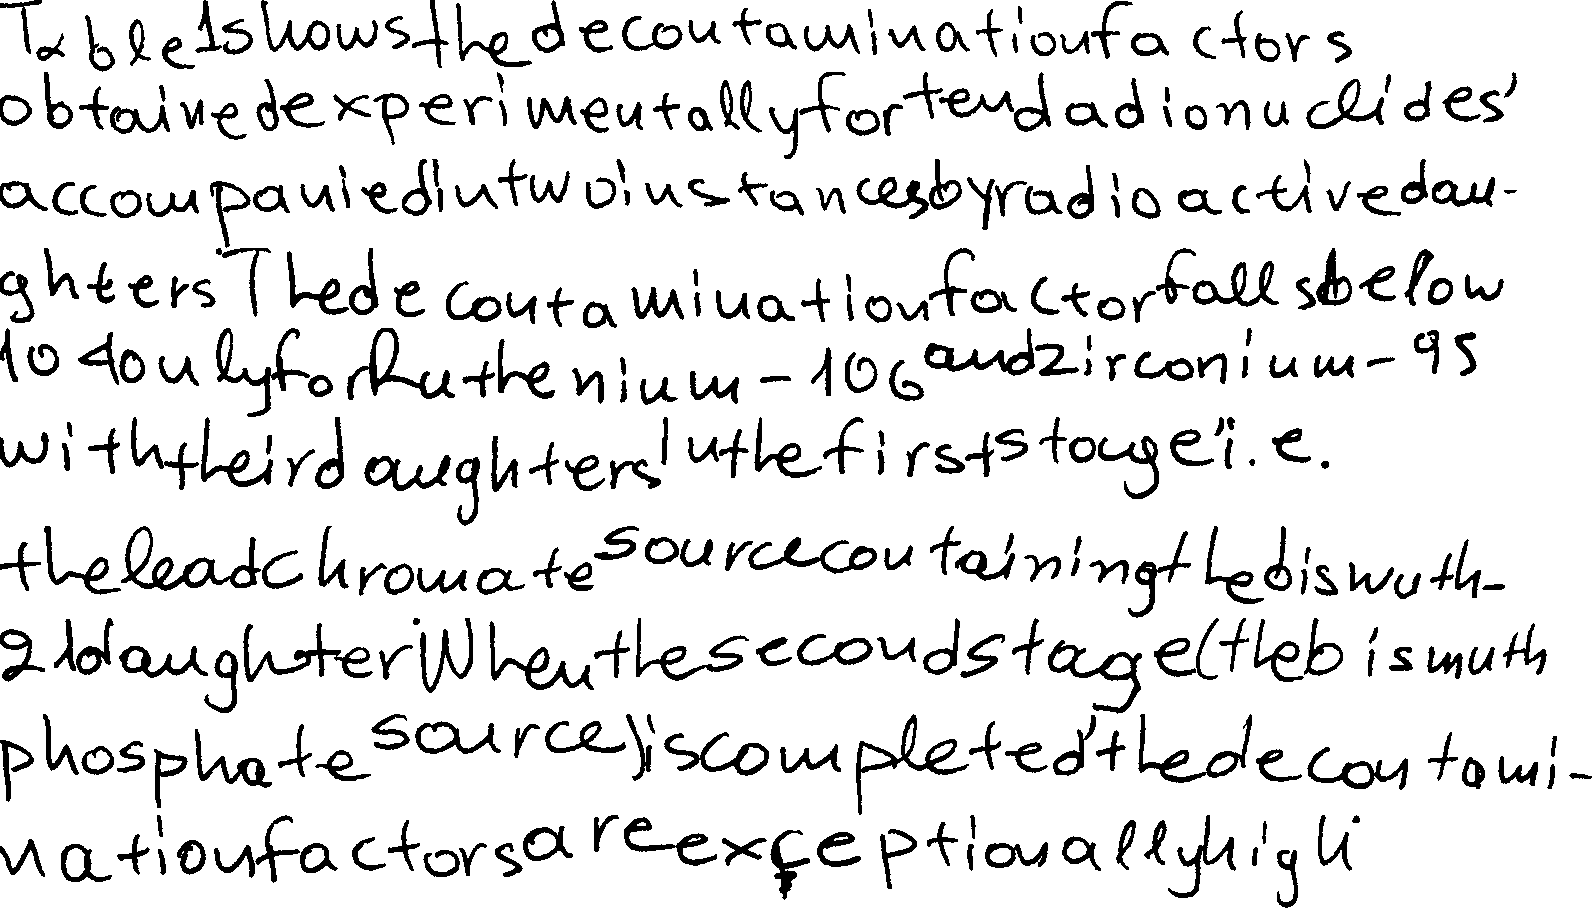 Table 1 shows the decontamination factors
obtained experimentally for ten dadionuclides,
accompanied in two instances by radioactive dau-
ghters. The decontamination factor falls below
10 4 only for Ruthenium-106 and zirconium-95
with their daughters. In the first stage, i.e.
the lead chromate source containing the biswuth-
210 daughter. When the second stage (the bismuth
phosphate source) is completed, the decontami-
nation factors are exceptionally high.